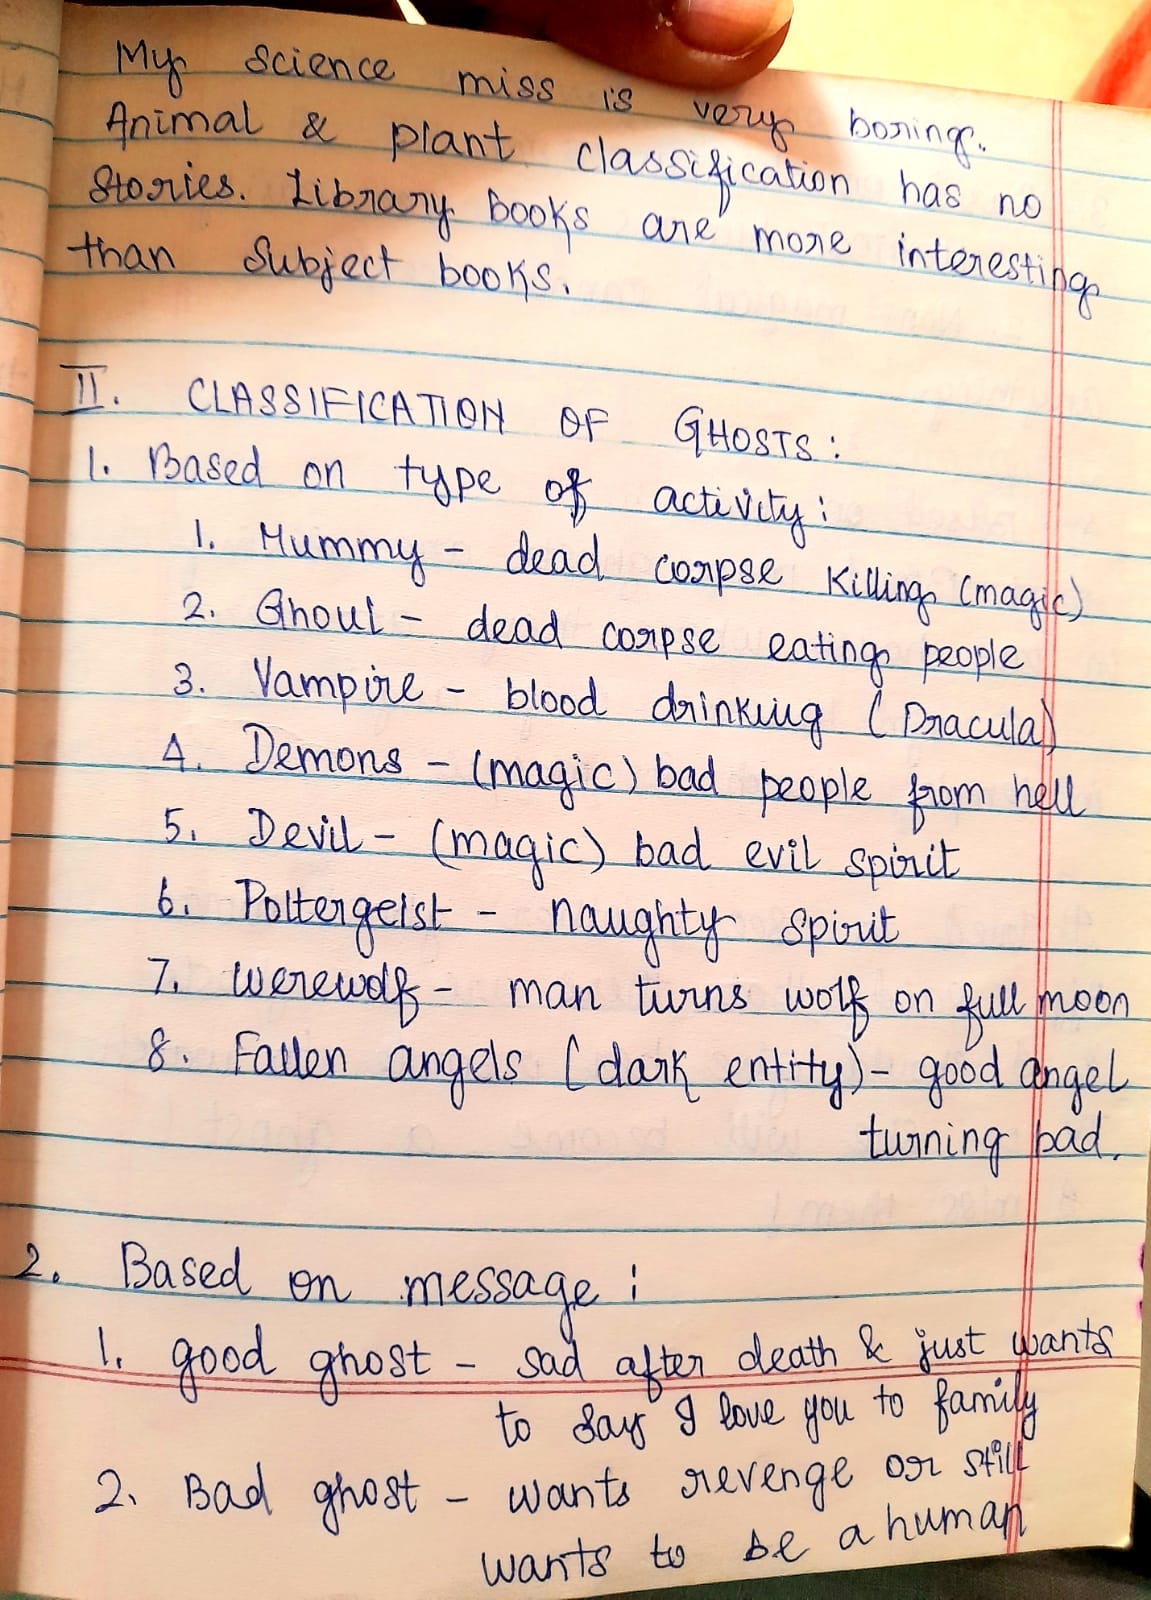 My science miss is very boring.
Animal & plant classification has no
stories. Library books are more interesting
than Subject books.
II. CLASSIFICATION OF GHOSTS:
1. Based on type of activity:
1. Mummy - dead corpse killing (magic)
2. Ghoul - dead corpse eating people
3. Vampire - blood drinking (Dracula)
4. Demons - (magic) bad people from hell
5. Devil - (magic) bad evil spirit
6. Poltergeist - naughty spirit
7. Werewolf - man turns wolf on full moon
8. Fallen angels (dark entity) - good angel
turning bad.
2. Based on message:
1. good ghost - sad after death & just wants
to say I love you to family
2. Bad ghost - wants revenge or still
wants to be a human